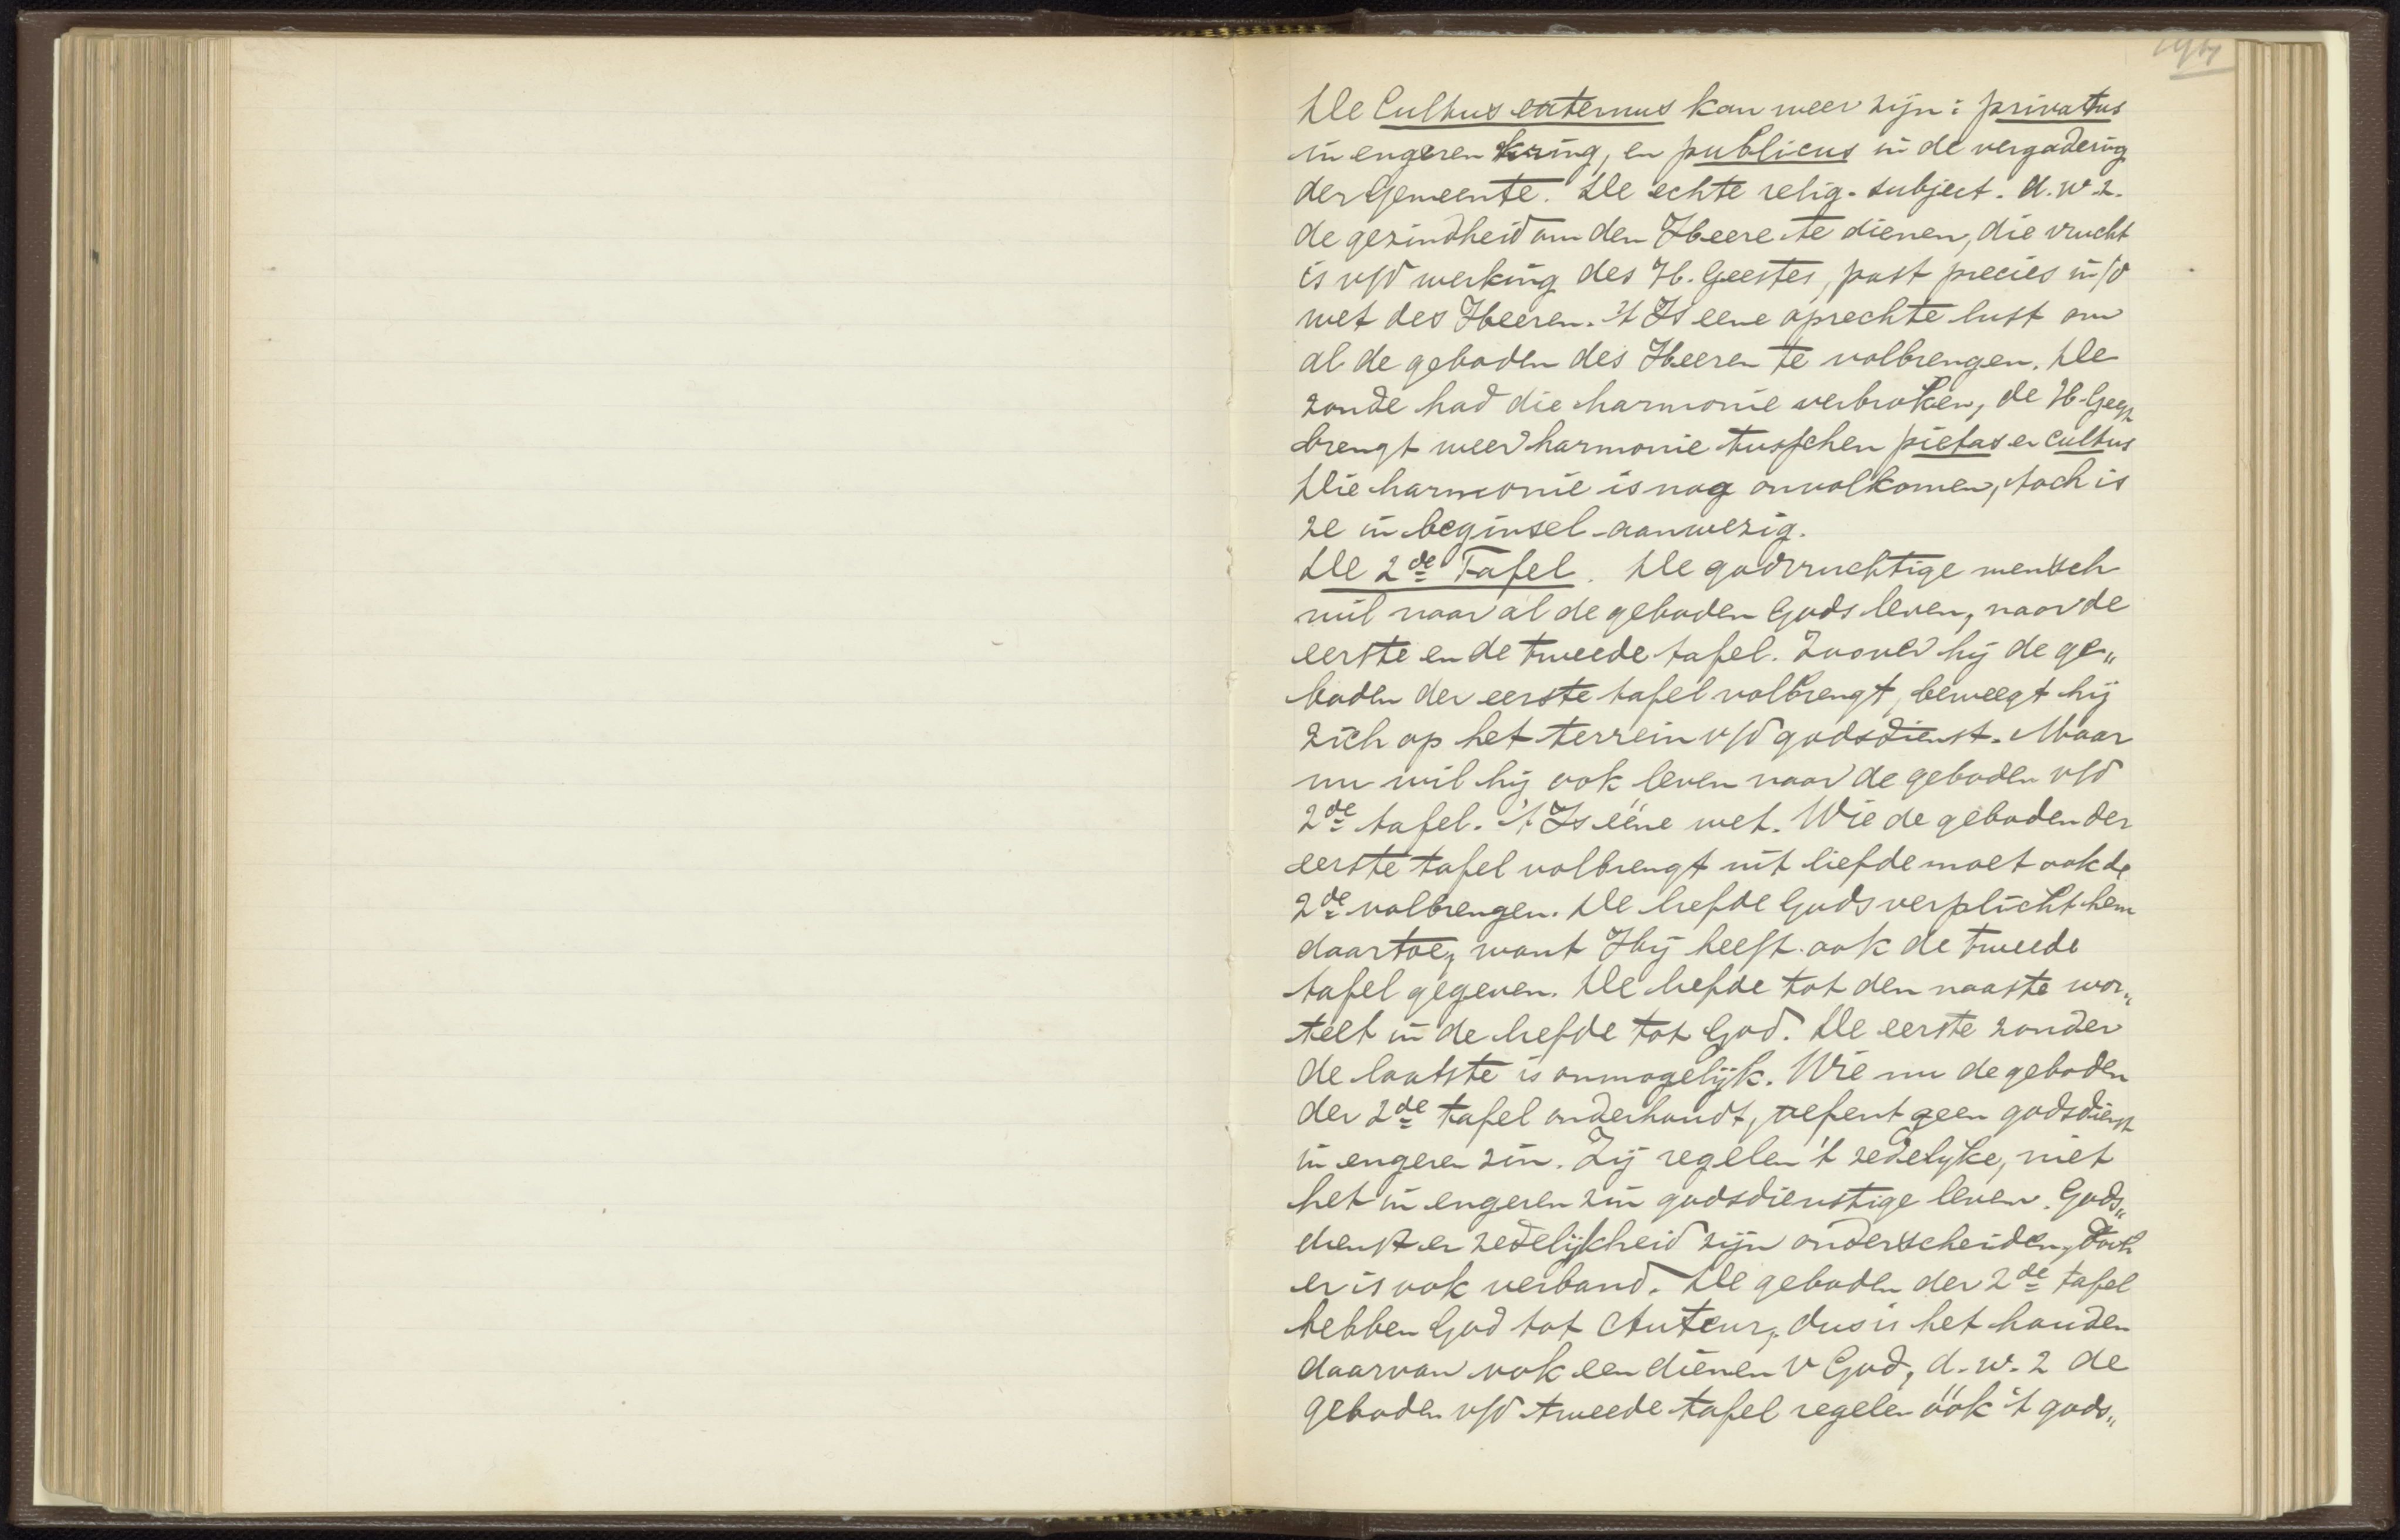 De Cultus externus kan weer zijn: privatus
in engeren kring, en publicus in de vergadering
der Gemeente. De echte relig. subject. d.w.z.
de gezindheid om den Heere te dienen, die vrucht
is v/d werking des H. Geestes, past precies in/d
wet des Heeren. 't Is eene oprechte lust om
al de geboden des Heeren te volbrengen. De
zonde had die harmonie verbroken, de H. Geest
brengt weer harmonie tusschen pietas en cultus
Die harmonie is nog onvolkomen, toch is
ze in beginsel aanwezig.
De 2de Tafel. De godvruchtige mensch
wil naar al de geboden Gods leven, naar de
eerste en de tweede tafel. Zoover hij de ge„
boden der eerste tafel volbrengt, beweegt hij
zich op het terrein v/d godsdienst. Maar
nu wil hij ook leven naar de geboden v/d
2de tafel. 't Is ééne wet. Wie de geboden der
eerste tafel volbrengt uit liefde moet ook de
2de volbrengen. De liefde Gods verplicht hem
daartoe, want Hij heeft ook de tweede
tafel gegeven. De liefde tot den naaste wor„
telt in de liefde tot God. De eerste zonder
de laatste is onmogelijk. Wie nu de geboden
der 2de tafel onderhoudt, oefent geen godsdienst
in engeren zin. Zij regelen 't zedelijke, niet
het in engeren zin godsdienstige leven. Gods„
dienst en zedelijkheid zijn onderscheiden, doch
er is ook verband. De geboden der 2de tafel
hebben God tot Auteur, dus is het houden
daarvan ook een dienen v God, d.w.z de
geboden v/d tweede tafel regelen óók 't gods„